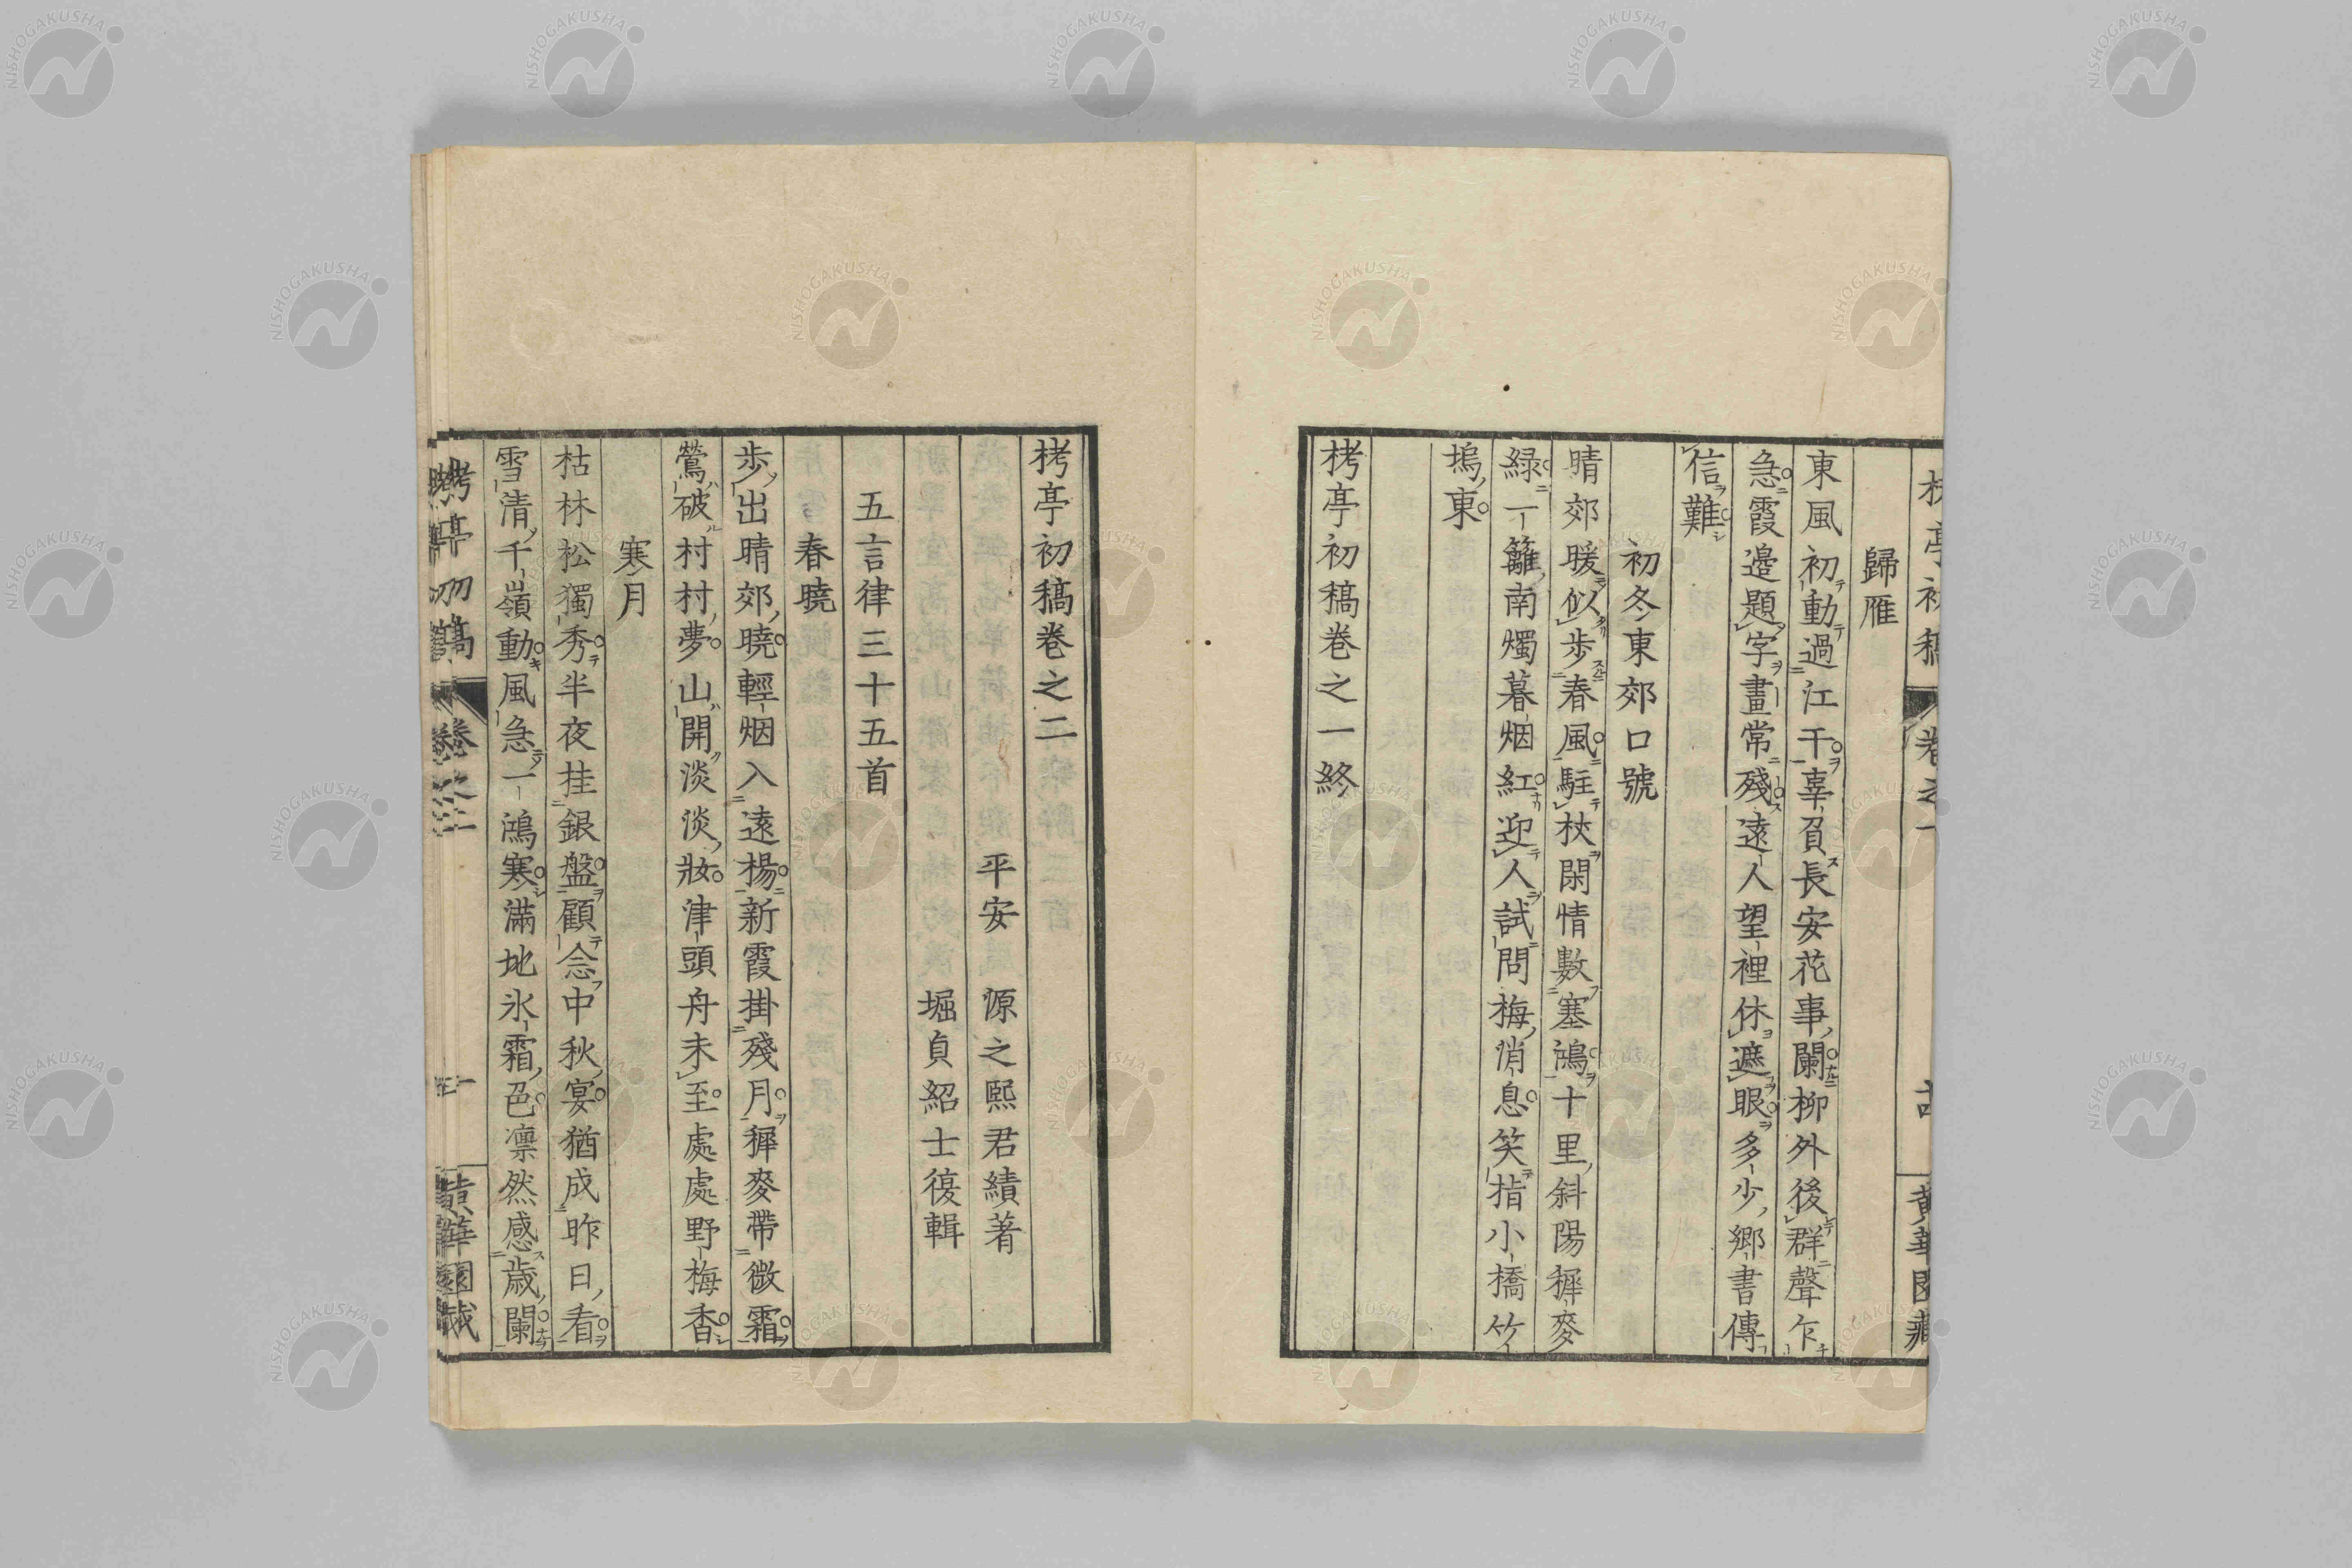 歸雁
東風初動過江干辜負長安花事闌柳外後群聲乍
急霞邊題字畫常殘遠人望裡休遮眼多少鄉書傳
信難
初冬東郊口號
晴郊暖似步春風駐杖閑情數塞鴻十里斜陽穉麥
綠一籬南燭暮烟紅迎人試問梅消息笑指小橋竹
塢東
栲亭初稿卷之一終
栲亭初稿卷之二
平安 源之熙君績著
堀貞紹士復輯
五言律三十五首
春曉
步出晴郊曉輕烟入遠楊新霞掛殘月穉麥帶微霜
鶯破村村夢山開淡淡妝津頭舟未至處處野梅香
寒月
枯林松獨秀半夜挂銀盤顧念中秋宴猶成昨日看
雪清千嶺動風急一鴻寒滿地氷霜色凛然感歲闌
栲亭初稿 卷之二 黄華園藏
NISHOGAKUSHA